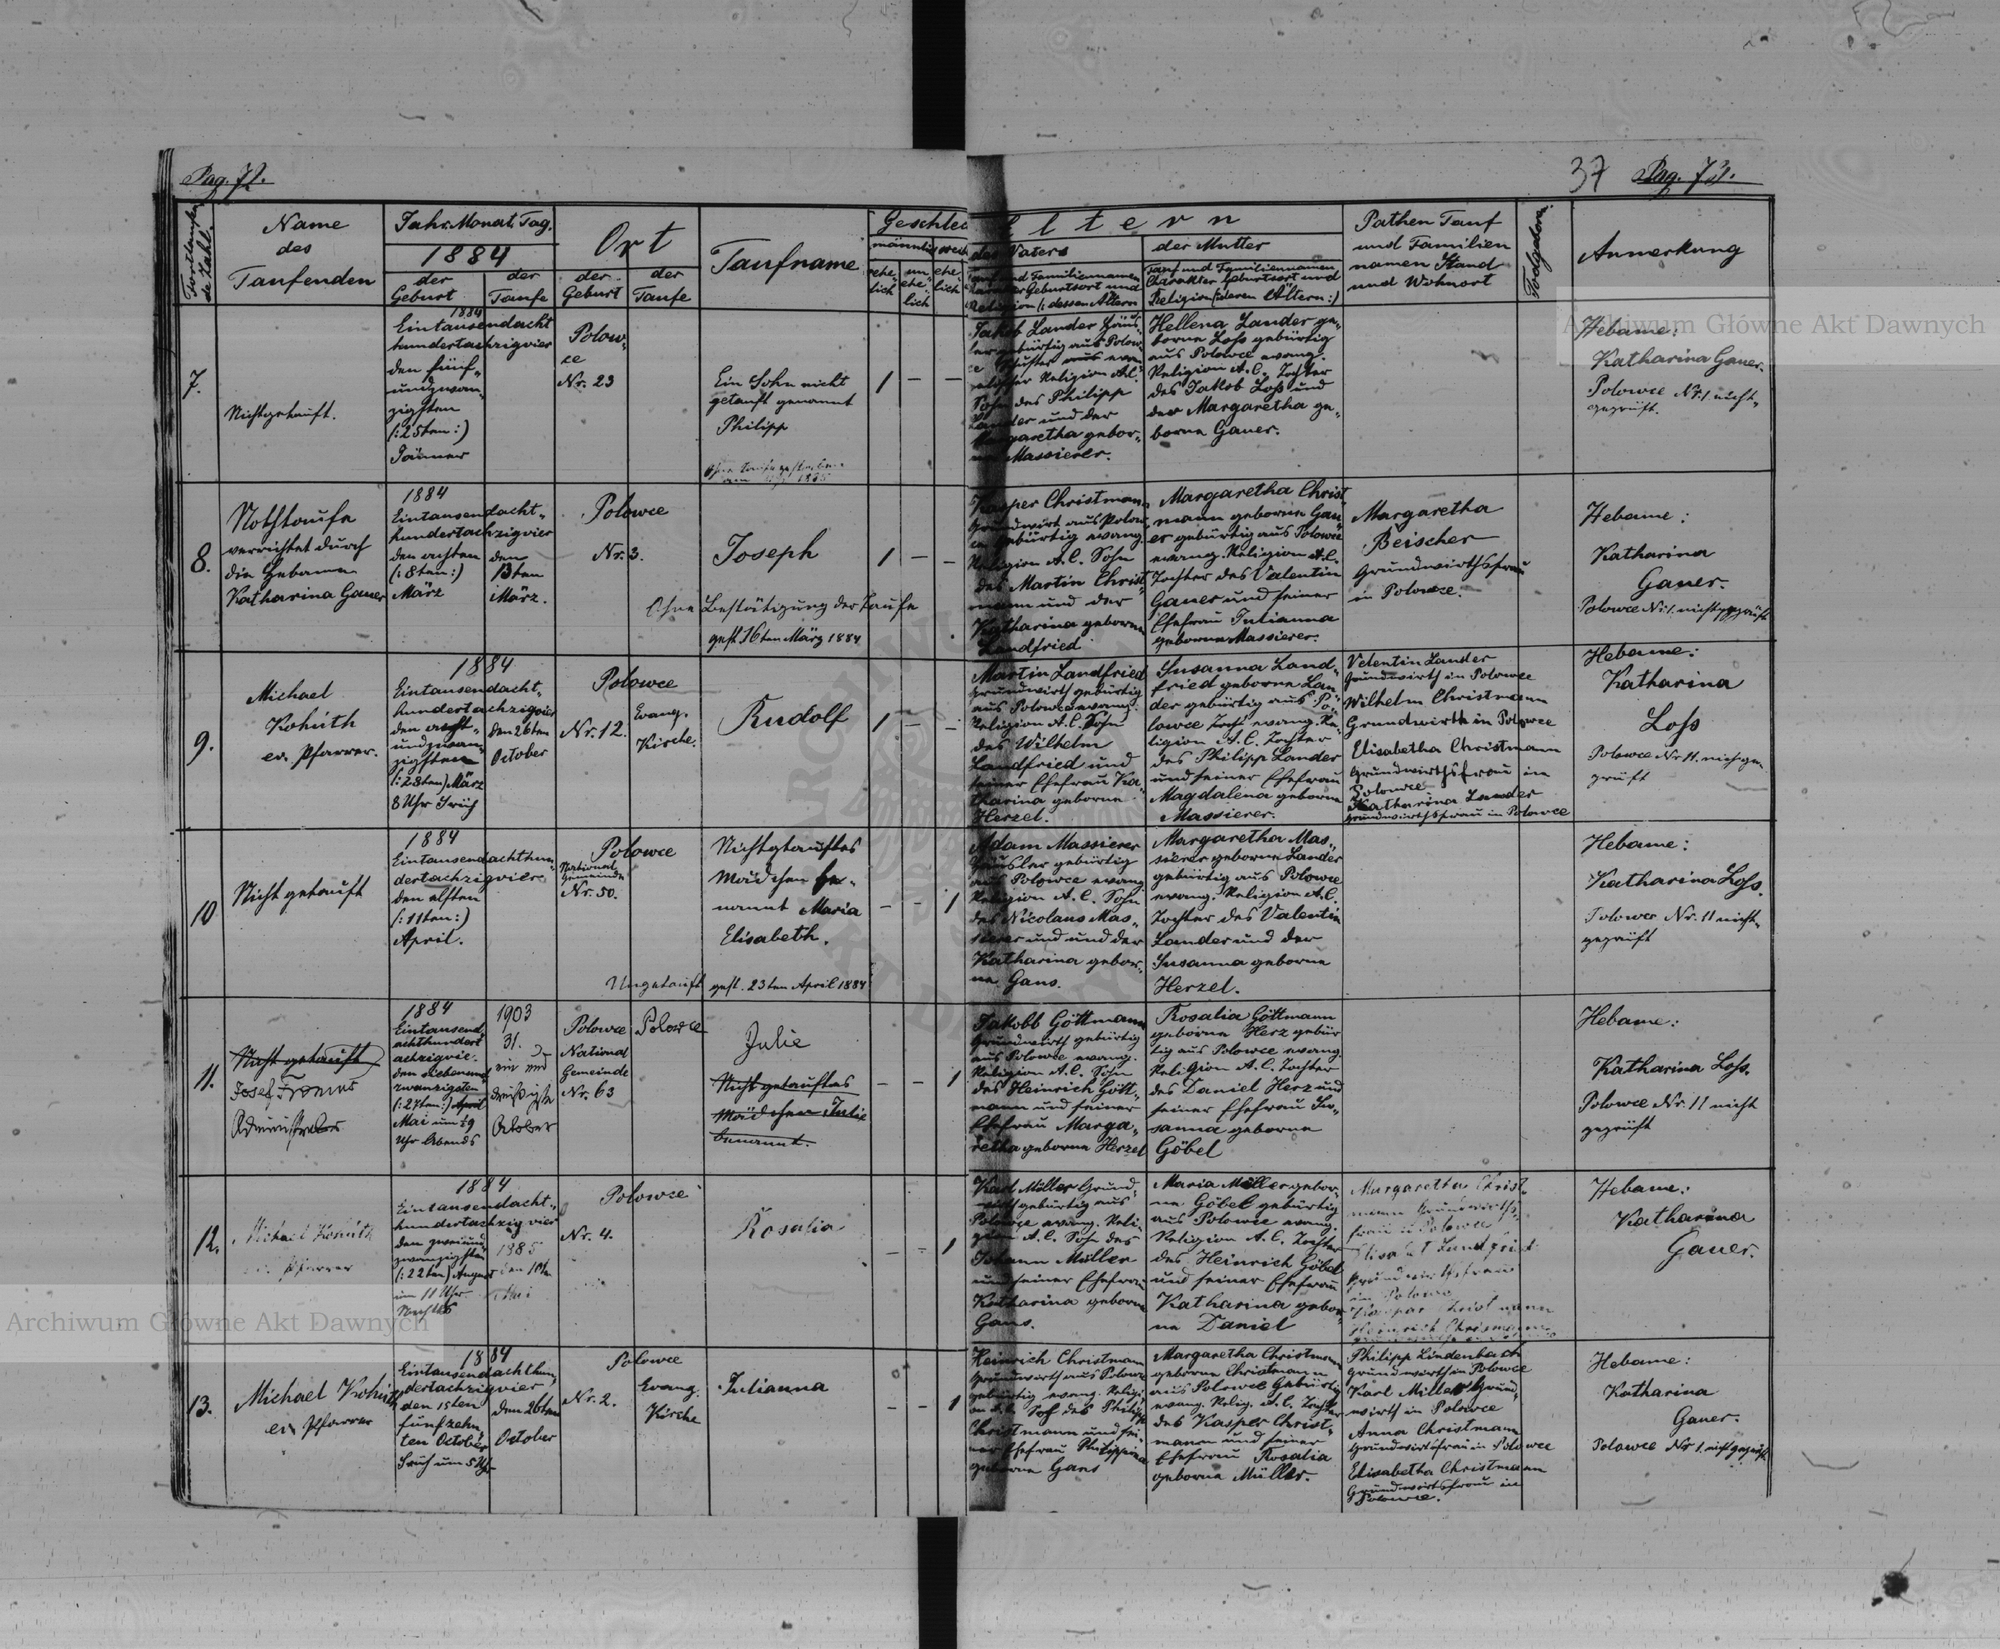 Pag. 72.
37 Pag. 73.
Fortlaufende Zahl.
Name
des
Taufenden
Jahr. Monat. Tag.
1884
der
Geburt
der
Taufe
Ort
der
Geburt
der
Taufe
Taufname
Geschlec
männlich
ehe-
lich
un-
ehe-
lich
ehe-
lich
Eltern
des Vaters
der Mutter
Tauf und Familiennamen
Charakter Geburtsort und
Religion (: deren Ältern :)
Pathen Tauf
und Familien
namen Stand
und Wohnort
Todtgeboren.
Anmerkung
7.
Nichtgetauft.
1884
Eintausendacht
hundertachzigvier
den fünf-
undzwan-
zigsten
(: 25ten :)
Jänner
Polow-
ce
Nr. 23
Ein Sohn nicht
getauft genannt
Philipp
1 — —
Jakob Lander Häus-
ler gebürtig aus Polow-
ce
Religion A.C.
Sohn des Philipp
Lander und der
Margaretha gebor-
ne Massierer.
Hellena Lander ge-
borne Loss gebürtig
aus Polowce evang.
Religion A.C. Tochter
des Jakob Loss und
der Margaretha ge-
borne Gauer.
Hebame:
Katharina Gauer.
Polowce Nr. 1 nicht
geprüft.
8.
Nothtaufe
verrichtet durch
die Hebamen
Katharina Gauer
1884
Eintausendacht-
hundertachzigvier
den achten
(: 8ten :)
März
den
13ten
März.
Polowce
Nr. 3.
Joseph
Ohne Bestätigung der Taufe
gest. 16ten März 1884
1 — —
Kasper Christman
Grundwirt aus Polow-
ce gebürtig evang.
Religion A.C. Sohn
des Martin Christ-
mann und der
Katharina geborne
Landfried
Margaretha Christ
mann geborne Gau-
er gebürtig aus Polowce
evang. Religion A.C.
Tochter des Valentin
Gauer und seiner
Ehefrau Julianna
geborne Massierer.
Margaretha
Beischer
Grundwirthsfrau
in Polowce.
Hebame:
Katharina
Gauer.
Polowce Nr. 1. nicht geprüft
9.
Michael
Kohúth
ev. Pfarrer.
1884
Eintausendacht-
hundertachzigvier
den acht-
undzwan-
zigsten
(: 28ten) März
8 Uhr Früh
den 26ten
October
Polowce
Nr. 12.
Evang.
Kirche.
Rudolf
1 — —
Martin Landfried
Grundwirth gebürtig
aus Polowce evang.
Religion A.C. Sohn
des Wilhelm
Landfried und
seiner Ehefrau Ka-
tharina geborne
Herzel.
Susanna Land-
fried geborne Lan-
der gebürtig aus Po-
lowce evang. Re-
ligion A.C. Tochter
des Philipp Lander
und seiner Ehefrau
Magdalena geborne
Massierer.
Velentin Lander
Grundwirth in Polowce
Wilhelm Christmann
Grundwirth in Polowce
Elisabetha Christmann
Grundwirthsfrau in
Polowce
Katharina Lander
Grundwirthsfrau in Polowce
Hebame:
Katharina
Loss
Polowce Nr 11. nicht ge-
prüft
10
Nicht getauft
1884
Eintausendachthun-
dertachzigvier
den elften
(: 11ten :)
April.
Polowce
National
Gemeinde
Nr. 50.
Nichtgetauftes
Mädchen be-
nannt Maria
Elisabeth.
Ungetauft gest. 23ten April 1884
— — 1
Adam Massierer
Häusler gebürtig
aus Polowce evang.
Religion A.C. Sohn
des Nicolaus Mas-
sierer und und der
Katharina gebor-
ne Gans.
Margaretha Mas-
sierer geborne Lander
gebürtig aus Polowce
evang. Religion A.C.
Tochter des Valentin
Lander und der
Susanna geborne
Herzel.
Hebame:
Katharina Loss.
Polowce Nr. 11 nicht
geprüft
11.
Nicht getauft
Josef
Administrator
1884
Eintausend
achthundert
achzigvier
den siebenund
zwanzigsten
(: 27ten :) April
Mai um 9
Uhr Abends
1903
31.
ein und
dreißigste
October
Polowce
National
Gemeinde
Nr. 63
Polowce
Julie
Nicht getauftes
Mädchen Julie
benannt.
— — 1
Jakobb Göttmann
Grundwirth gebürtig
aus Polowce evang.
Religion A.C. Sohn
des Heinrich Gött-
mann und seiner
Ehefrau Marga-
retha geborne Herzel
Rosalia Göttmann
geborne Herz gebür
tig aus Polowce evang.
Religion A.C. Tochter
des Daniel Herz und
seiner Ehefrau Su-
sanna geborne
Göbel
Hebame:
Katharina Loss.
Polowce Nr. 11 nicht
geprüft
12.
Michael Kohúth
ev. Pfarrer
1884
Eintausendacht-
hundertachzigvier
den zweiund
zwanzigsten
(: 22ten) August
um 11 Uhr
Nachts
1885
Mai
Polowce
Nr. 4.
Rosalia
— — 1
Karl Müller Grund-
wirth gebürtig aus
Polowce evang. Reli-
gion A.C. Sohn des
Johann Müller
und seiner Ehefrau
Katharina geborne
Gans.
Maria Müller gebor-
ne Göbel gebürtig
aus Polowce evang.
Religion A.C. Tochter
des Heinrich Göbel
und seiner Ehefrau
Katharina gebor-
ne Daniel
Margaretha Christ-
mann Grundwirths-
frau in Polowce
Elisabet Landfried
Grundwirthsfrau
in Polowce
Kaspar Christmann
Heinrich Christmann
Hebame:
Katharina
Gauer.
13.
Michael Kohúth
ev. Pfarrer
1884
Eintausendachthun-
dertachzigvier
den 15ten
fünfzehn-
ten October
Früh um 5 Uhr
den 26ten
October
Polowce
Nr. 2.
Evang.
Kirche
Julianna
— — 1
Heinrich Christmann
Grundwirth aus Polowce
gebürtig evang. Religi-
on A.C. Sohn des Philipp
Christmann und sei-
ner Ehefrau Philippina
geborne Gans
Margaretha Christmann
geborne Christmann
aus Polowce Gebürtig
evang. Relig. A.C. Tochter
des Kasper Christ-
mann und seiner
Ehefrau Rosalia
geborne Müller.
Philipp Lindenbach
Grundwirth in Polowce
Karl Miller Grund-
wirth in Polowce
Anna Christmann
Grundwirthsfrau in Polowce
Elisabetha Christmann
Grundwirthsfrau in
Polowce.
Hebame:
Katharina
Gauer.
Polowce Nr 1. nicht geprüft
Archiwum Główne Akt Dawnych
Archiwum Główne Akt Dawnych